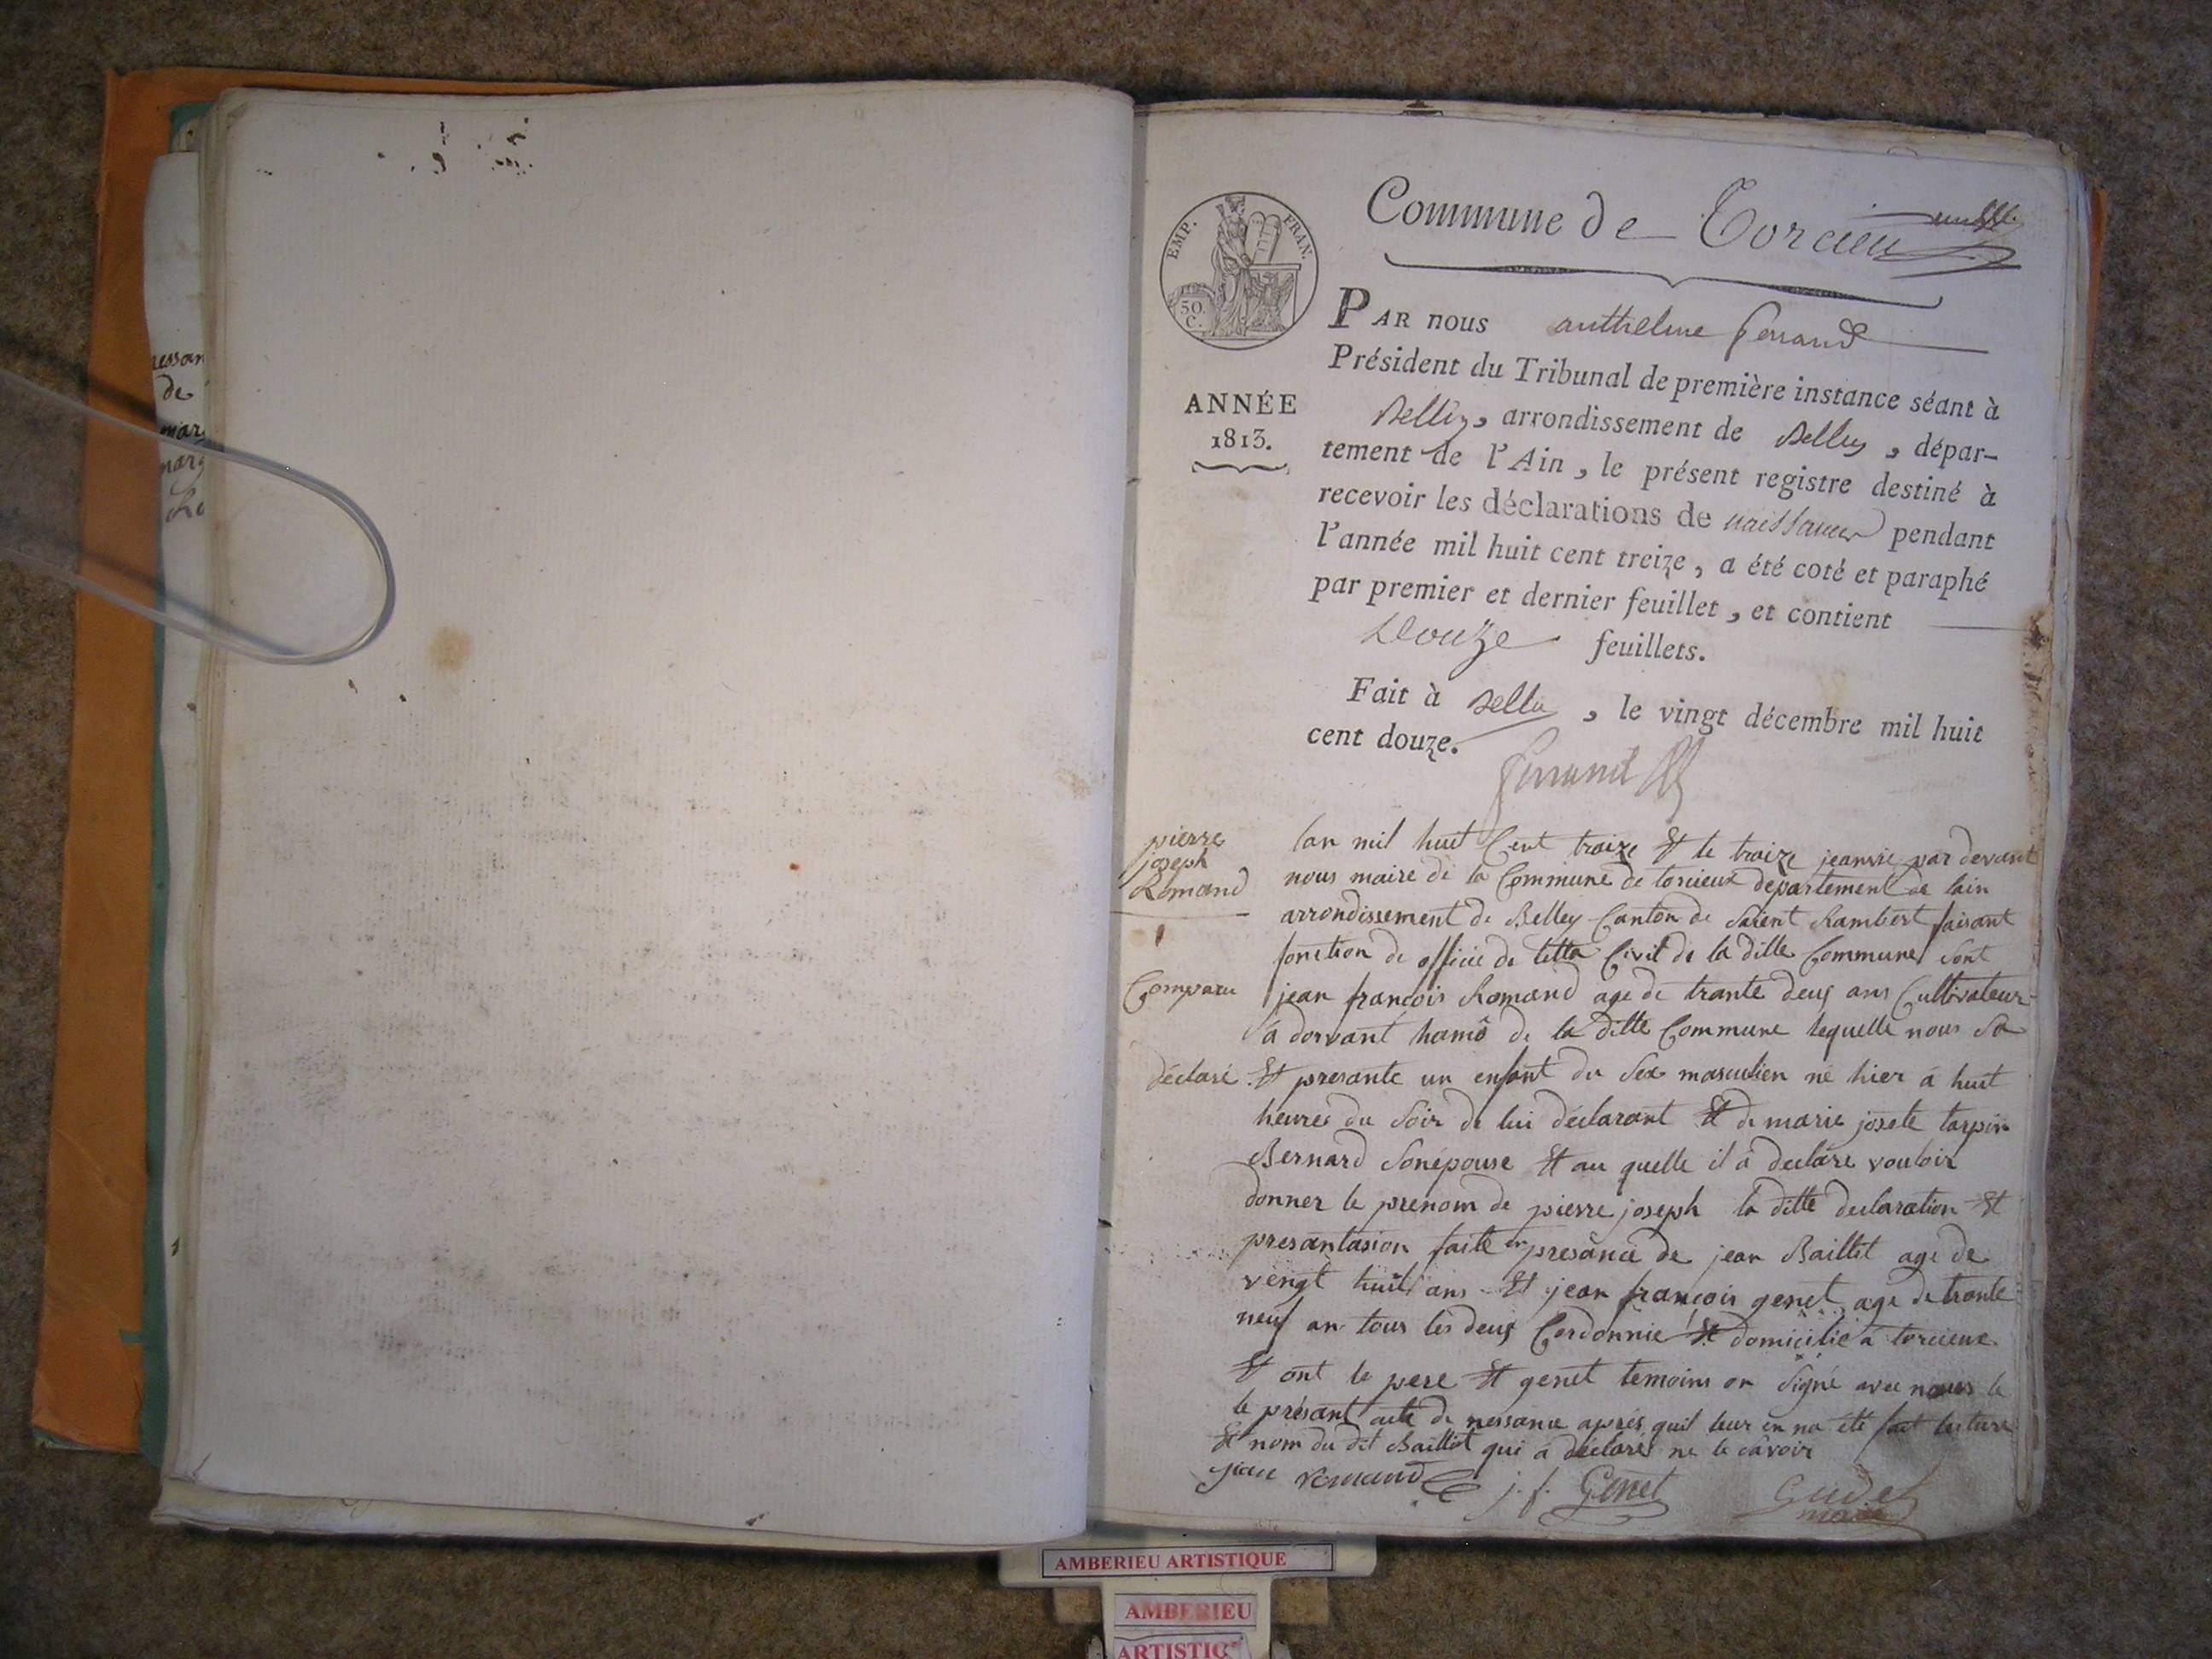 ressan
de
mar
marg
EMP. FRAN.
50
C.
ANNÉE
1813.
Commune de Torcieu
PAR nous anthelme ferrand
Président du Tribunal de première instance séant à
Belley, arrondissement de Belley, dépar-
tement de l'Ain, le présent registre destiné à
recevoir les déclarations de naissances pendant
l'année mil huit cent treize, a été coté et paraphé
par premier et dernier feuillet, et contient
Douze feuillets.
Fait à Belley, le vingt décembre mil huit
cent douze.
ferrand
pierre
joseph
Romand
lan mil huit Cent traize Et le traize jeanvie par devant
nous maire de la Commune de torcieux departement de lain
arrondissement de Belley Canton de Saient Rambert faisant
fonction de officié de letta Civil de la ditte Commune sont
Comparu jean francois Romand age de trante deux ans Cultivateur
à dorvant hamô de la ditte Commune lequelle nous sa
déclaré Et presante un enfant du Sex masculien né hier à huit
heures du Soir de lui déclarant Et de marie josete tarpin
Bernard Sonépouse Et au quelle il à declare vouloir
donner le prenom de pierre joseph la ditte declaration Et
presantasion faite en presance de jean Baillet age de
vengt huit ans Et jean françois genet age de trante
neuf an tous les deux Cordonnié Et domicilié à torcieux
Et ont le pere Et genet temoins on Signé avec nous le
le présant acte de nessance aprés quil leur en na été fait lecture
Et nom du dit Baillet qui à déclaré ne le savoir
jean romand j. f. Genet Gudet
maire
AMBERIEU ARTISTIQUE
AMBERIEU
ARTISTIQ